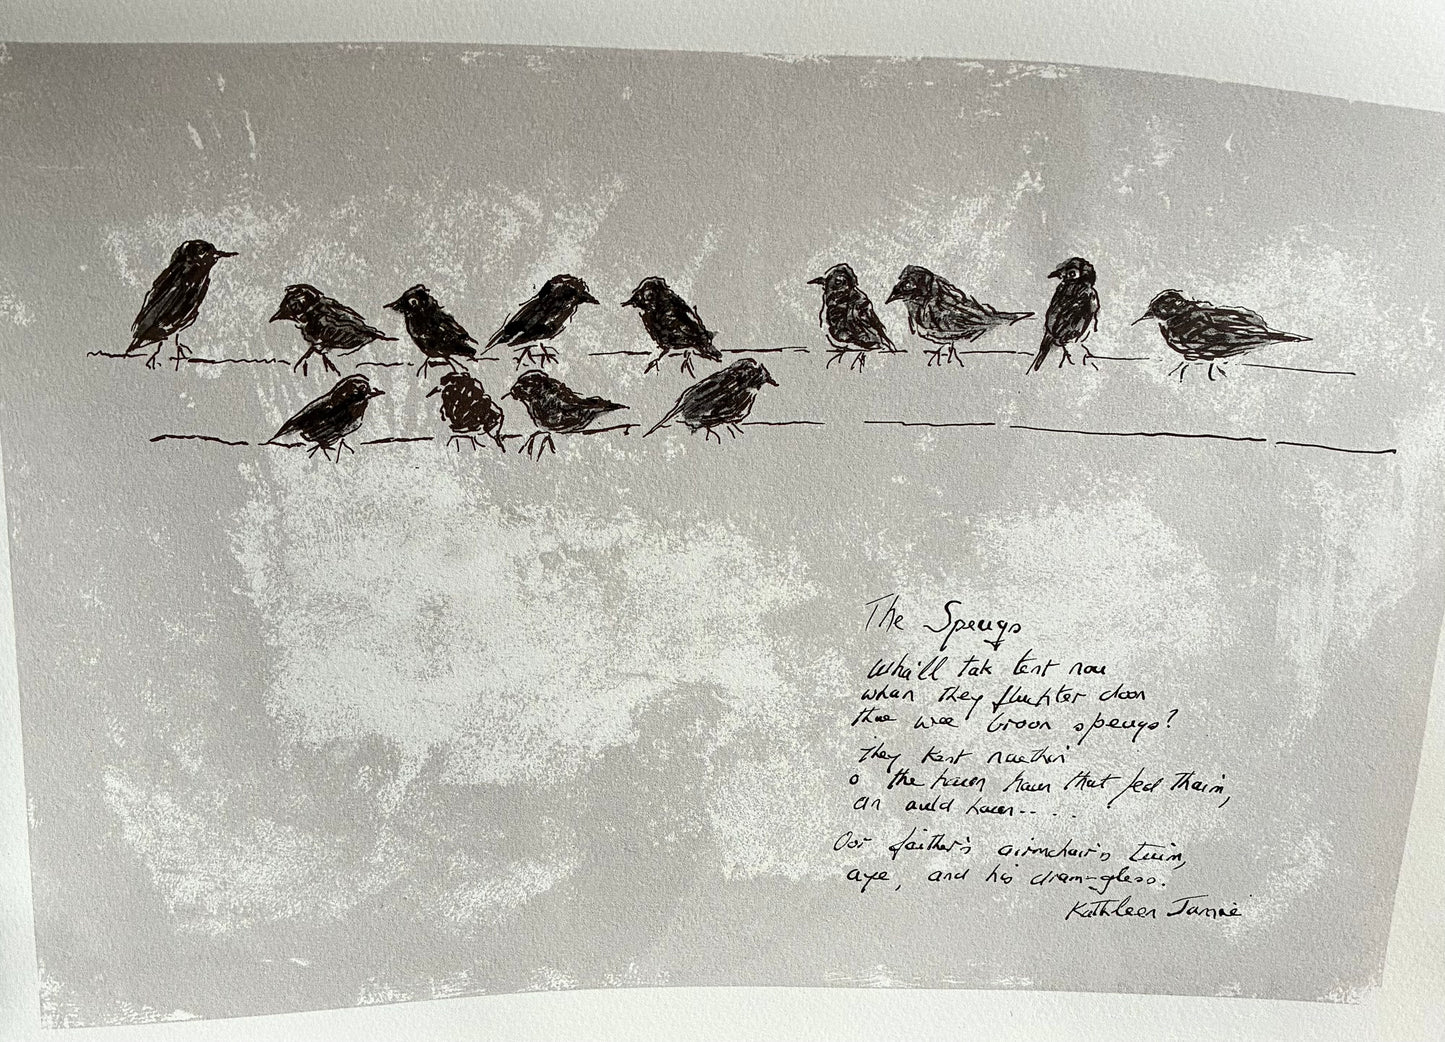 The Speugs
Wha'll tak tent nou
whan they flichter doon
thae wee broon speugs?
They kent naethin
o the haun that fed thaim,
an auld haun....
Oor faither's airmchair's tuim,
aye, and his dram-gless.
Kathleen Jamie